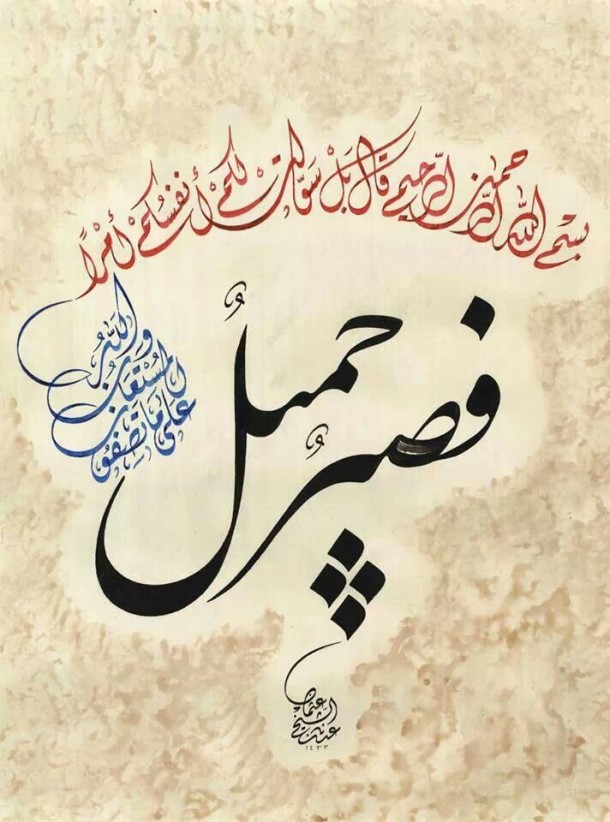 بسم الله الرحمن الرحيم قال بل سولت لكم أنفسكم أمرًا
فصبرٌ جميلٌ
والله المستعان على ما تصفون
عثمان
الشيخ
١٤٣٣